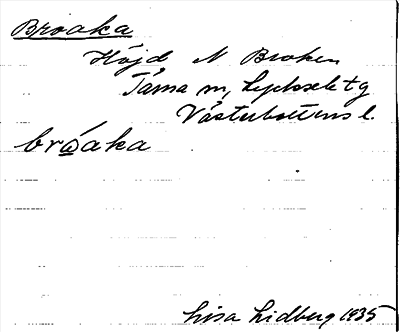 Brooka
Höjd N Broken
Tärna sn, Lycksele tg
Västerbottens l.
bròaka
Lisa Lidberg 1935